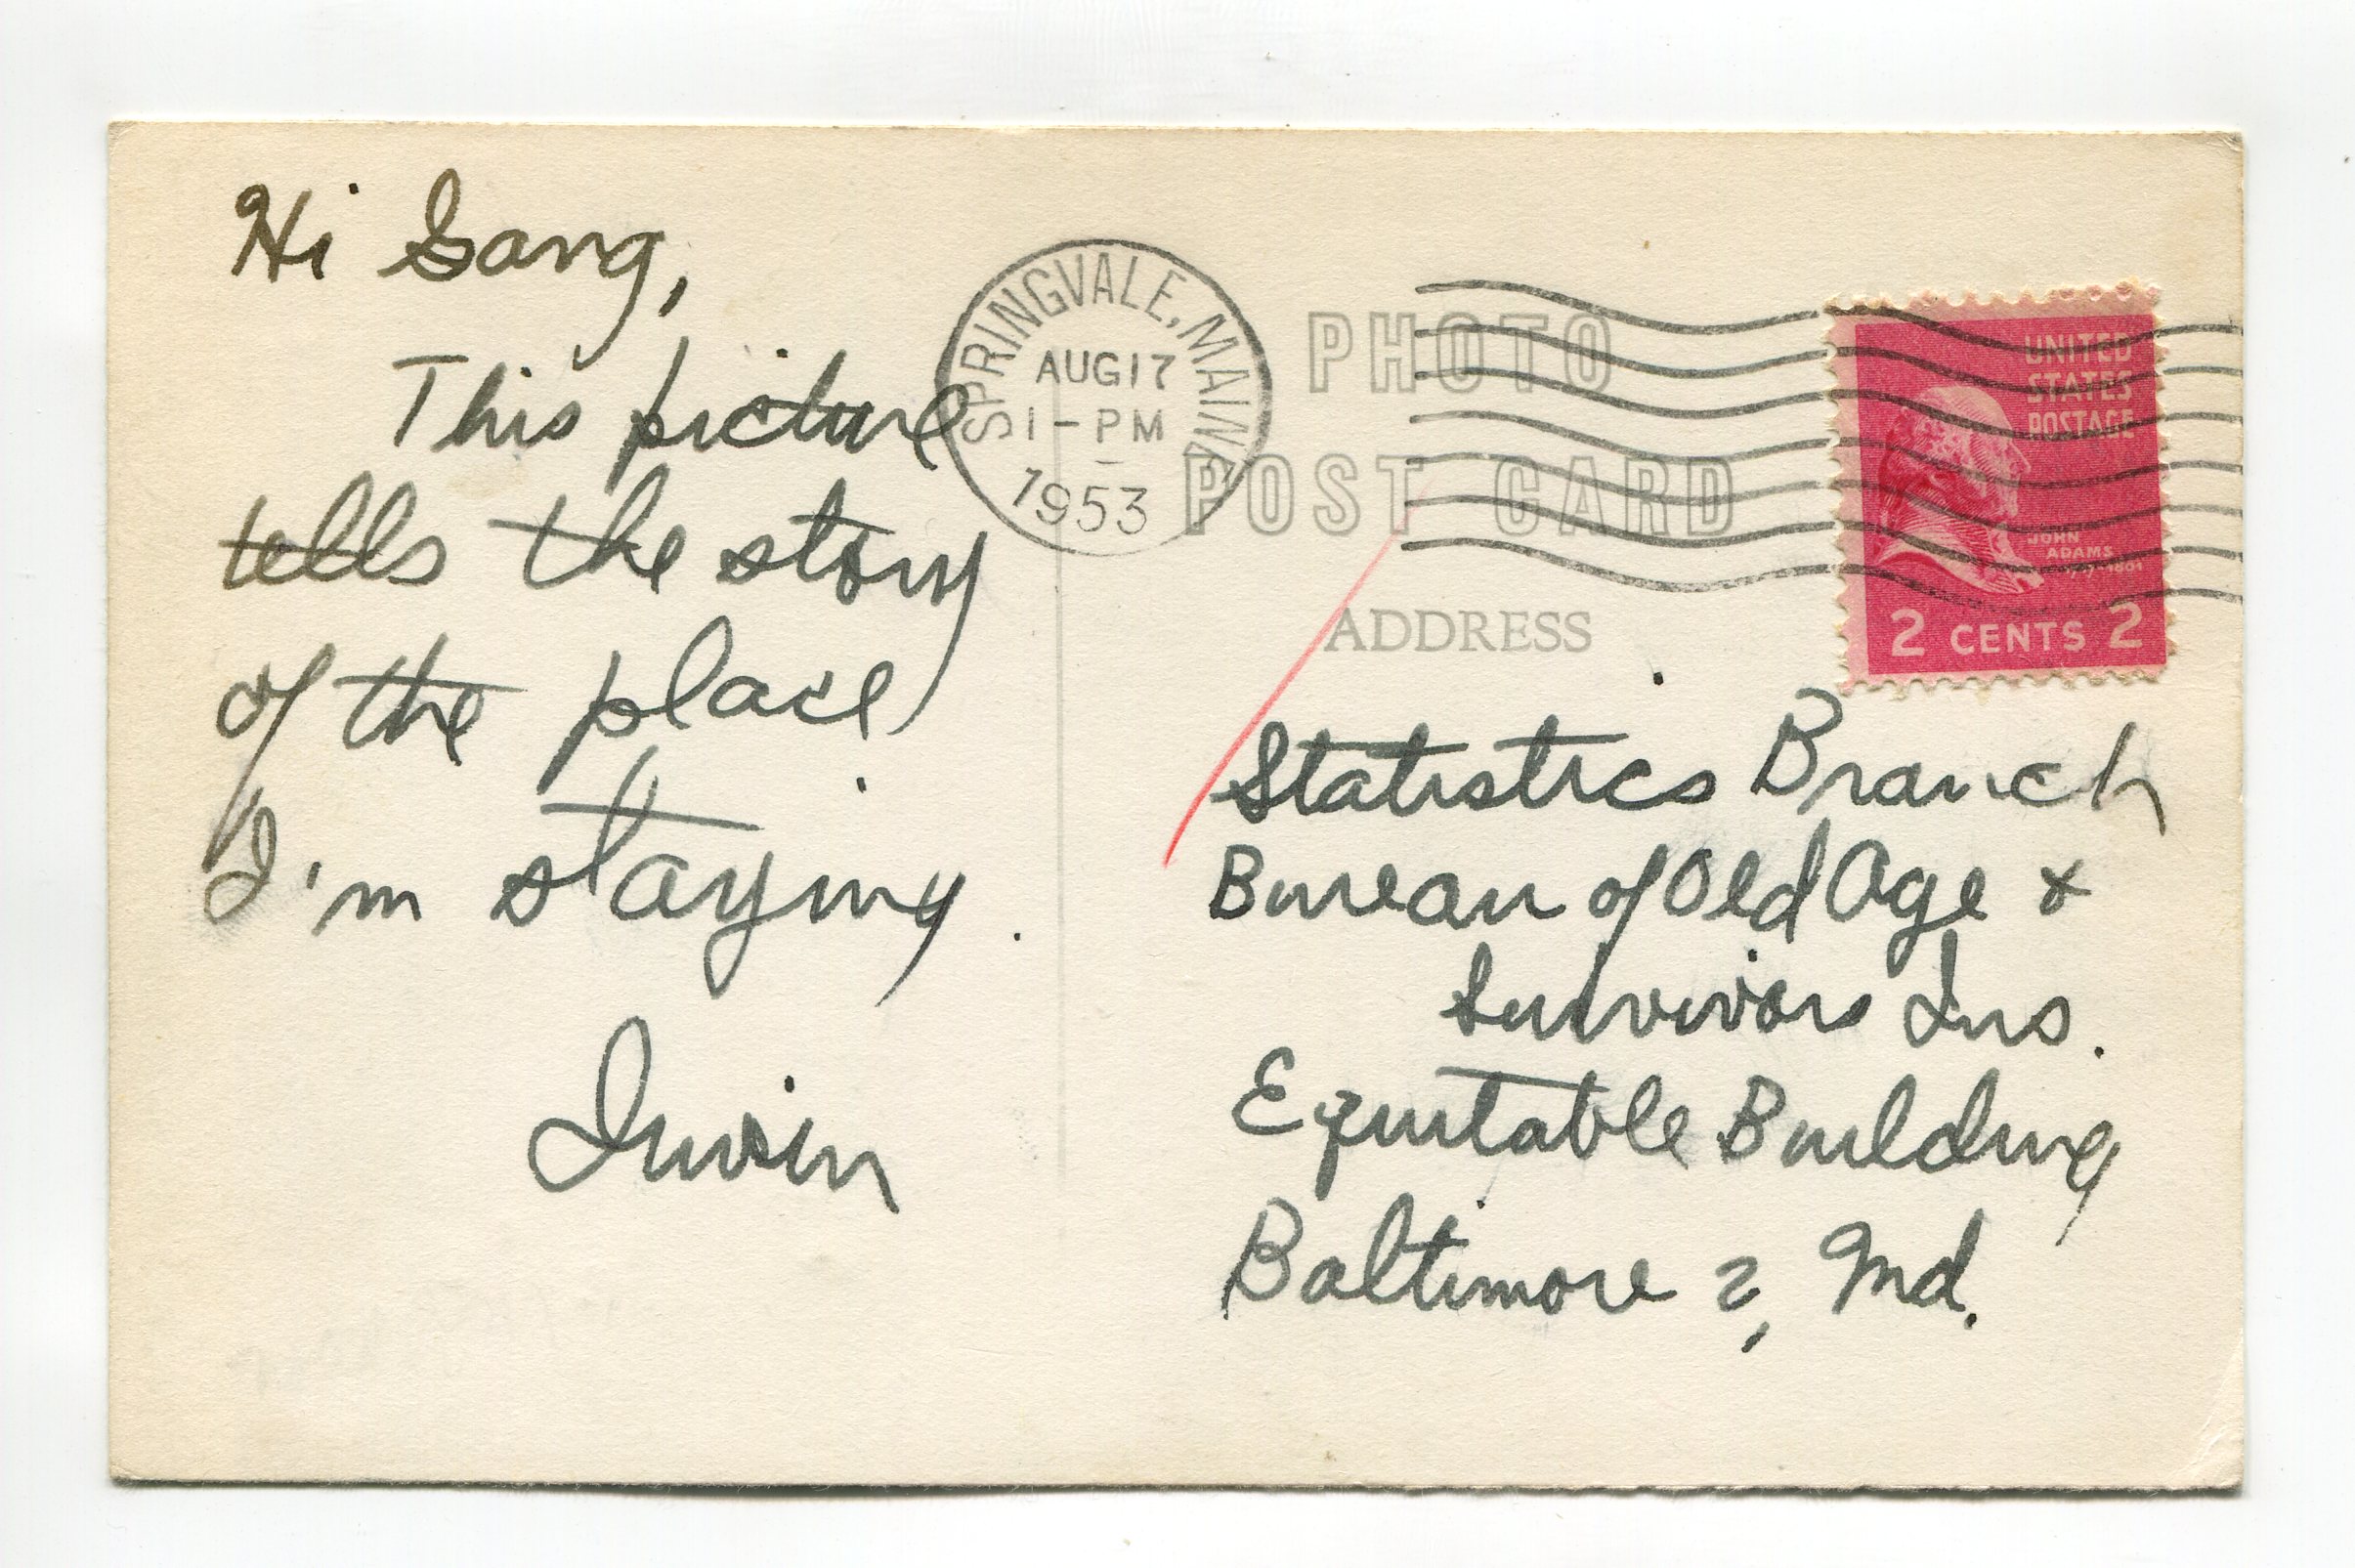 Hi Gang,
This picture
tells the story
of the place
I'm staying.
Irwin
SPRINGVALE, MAINE
AUG 17
1 - PM
1953
PHOTO
POST CARD
ADDRESS
UNITED
STATES
POSTAGE
JOHN
ADAMS
2 CENTS 2
Statistics Branch
Bureau of Old Age &
Survivors Ins.
Equitable Building
Baltimore 2, Md.